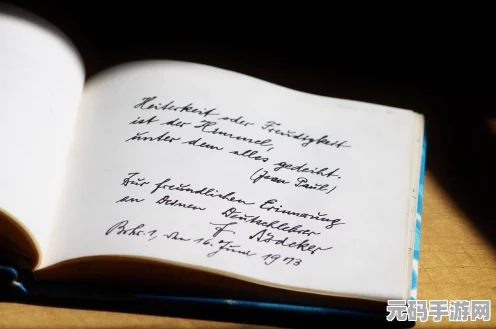 Heiterkeit oder Freudigkeit
ist der Himmel,
unter dem alles gedeiht.
(Jean Paul)
Zur freundlichen Erinnerung
an Deinen Deutschlehrer
den 16. Juni 1973
元码手游网